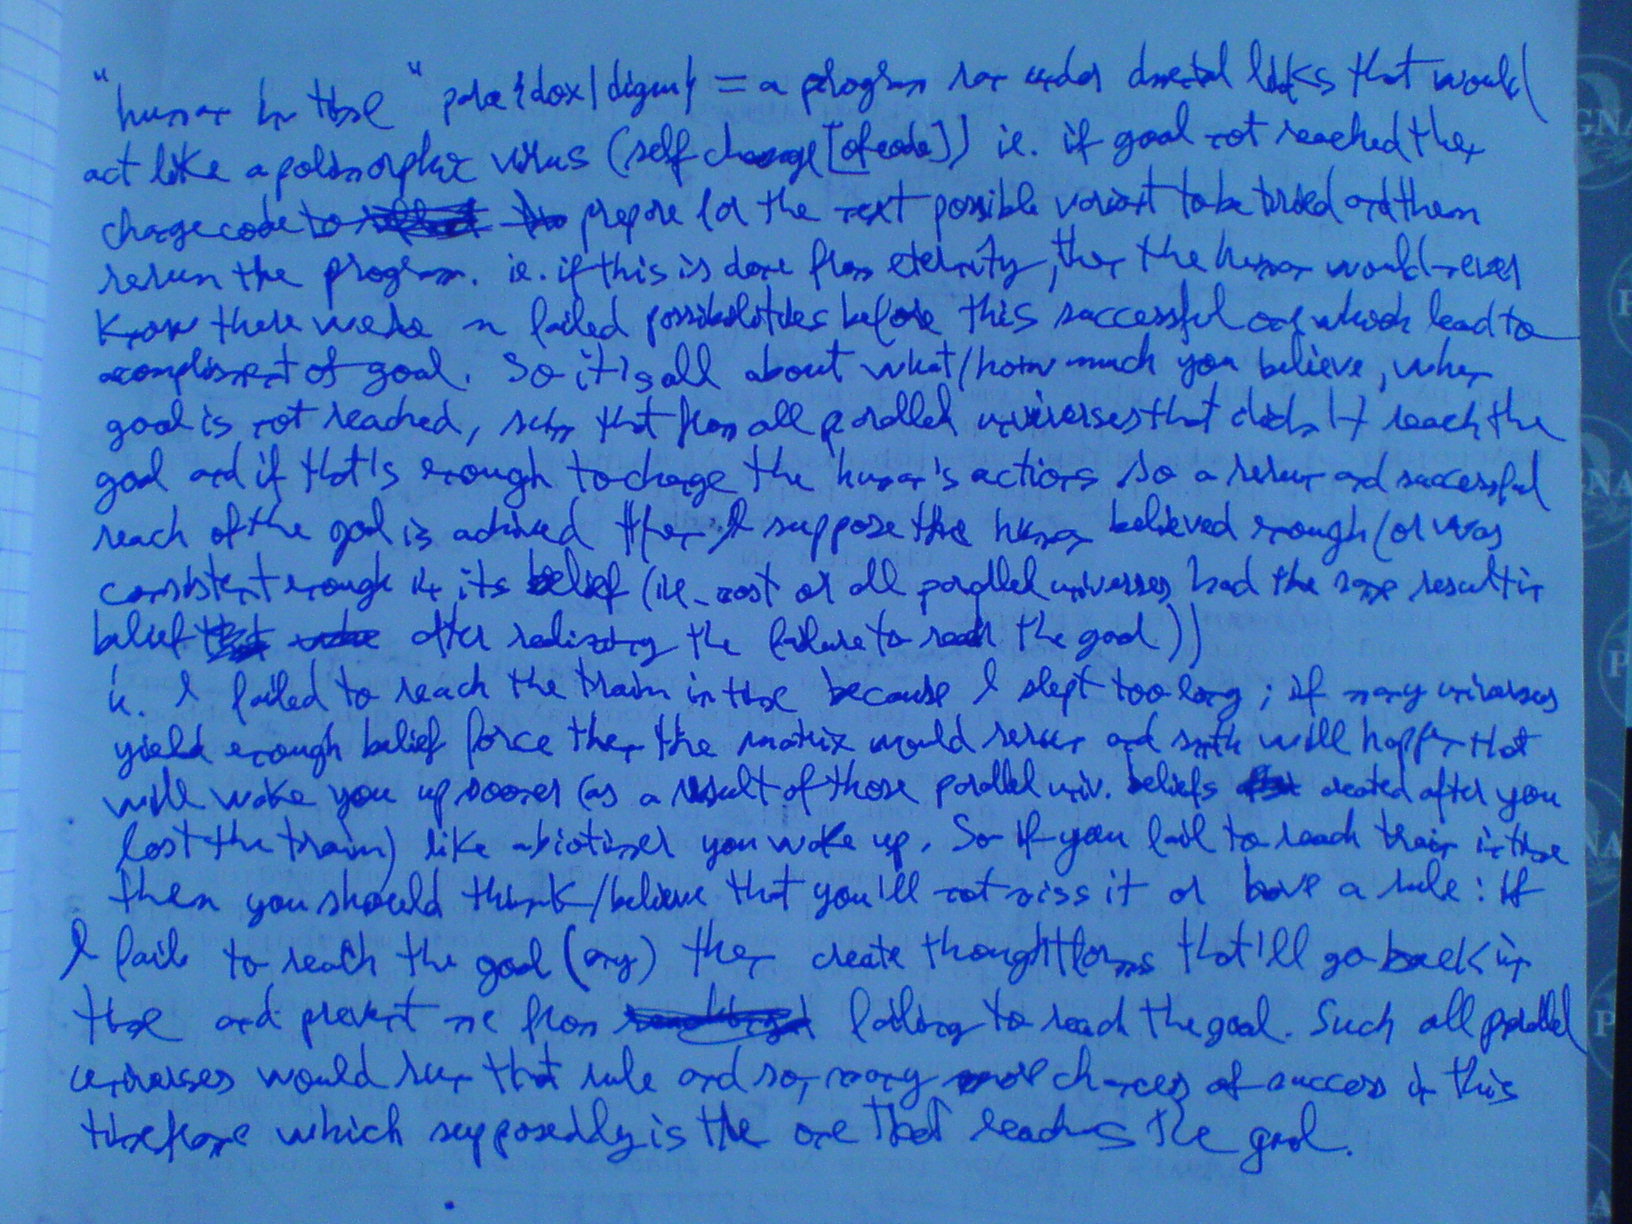 "human in time" para{dox|digm} = a program ran under links that would
act like a polimorphic virus (self change [of code]) ie. if goal not reached then
change code to prepare for the next possible variant to be tried and then
rerun the program. ie. if this is done from eternity, then the human would never
know there were n failed possibilities before this successful one which lead to
acomplisment of goal. So it's all about what/how much you believe, when
goal is not reached, sum that from all parallel universes that didn't reach the
goal and if that's enough to change the human's actions so a rerun and successful
reach of the goal is achived then I suppose the human believed enough (or was
consistent enough in its belief (ie. most or all parallel universes had the same result in
belief after realizing the failure to reach the goal))
ie. I failed to reach the train in time because I slept too long; if many universes
yield enough belief force then the matrix would rerun and smth will happen that
will wake you up sooner (as a result of those parallel univ. beliefs created after you
lost the train) like you woke up. So if you fail to reach train in time
then you should think/believe that you'll not miss it or have a rule: if
I fail to reach the goal (any) then create thoughtforms that'll go back in
time and prevent me from failing to reach the goal. Such all parallel
universes would run that rule and so, many more chances of success in this
timeframe which supposedly is the one that reaches the goal.
GNA
P